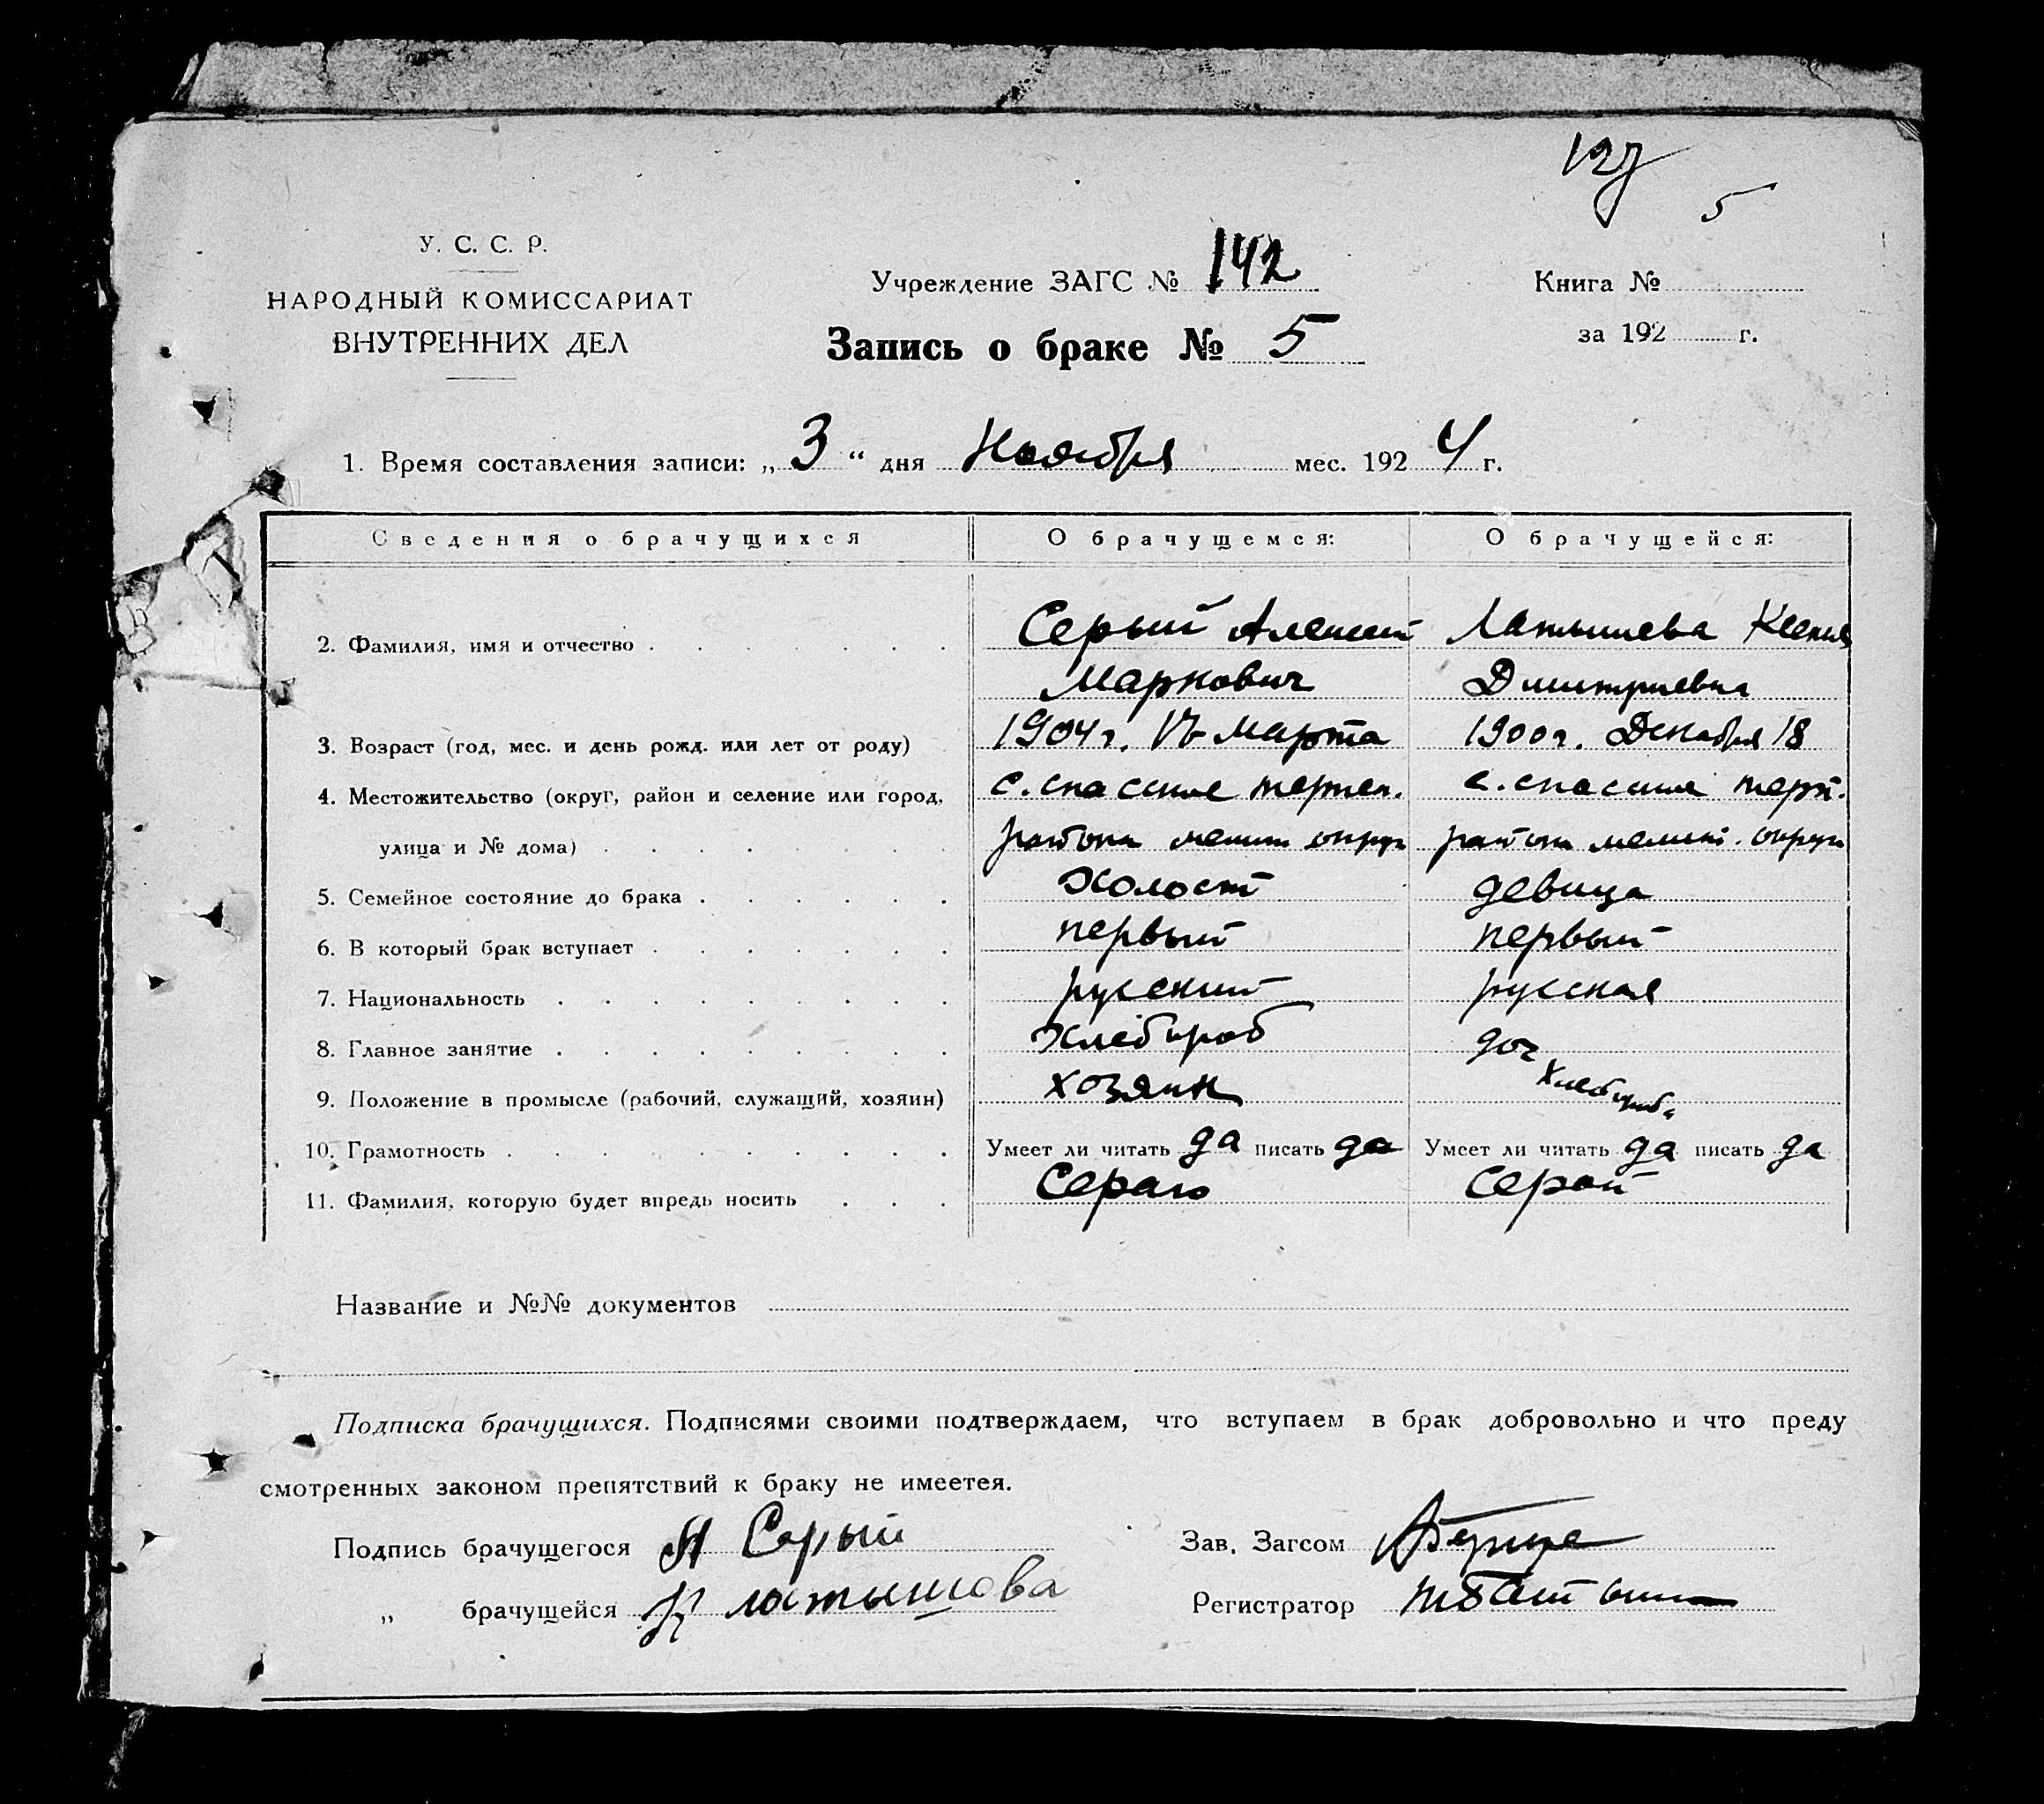 5
У. С. С. Р.
НАРОДНЫЙ КОМИССАРИАТ
ВНУТРЕННИХ ДЕЛ
Учреждение ЗАГС № 142
Запись о браке № 5
Книга №
за 192 г.
1. Время составления записи: „ 3 “ дня Ноября мес. 192 4 г.
Сведения о брачущихся О брачущемся: О брачущейся:
2. Фамилия, имя и отчество Серый Алексей Латышева Ксения
Маркович Дмитриевна
3. Возраст (год, мес. и день рожд. или лет от роду) 1904 г. Марта 1900 г. Декабря 18
4. Местожительство (округ, район и селение или город, с. спасское терпен. с. спасское терп.
улица и № дома) района мелит округ района мелит. округ
5. Семейное состояние до брака Холост девица
6. В который брак вступает первый первый
7. Национальность русский русская
8. Главное занятие Хлебороб доч
хлебороба
9. Положение в промысле (рабочий, служащий, хозяин) хозяин
10. Грамотность Умеет ли читать да писать да Умеет ли читать да писать да
11. Фамилия, которую будет впредь носить Серого Серой
Название и №№ документов
Подписка брачущихся. Подписями своими подтверждаем, что вступаем в брак добровольно и что преду
смотренных законом препятствий к браку не имеетея.
Подпись брачущегося А Серый Зав. Загсом
„ брачущейся К латышова Регистратор